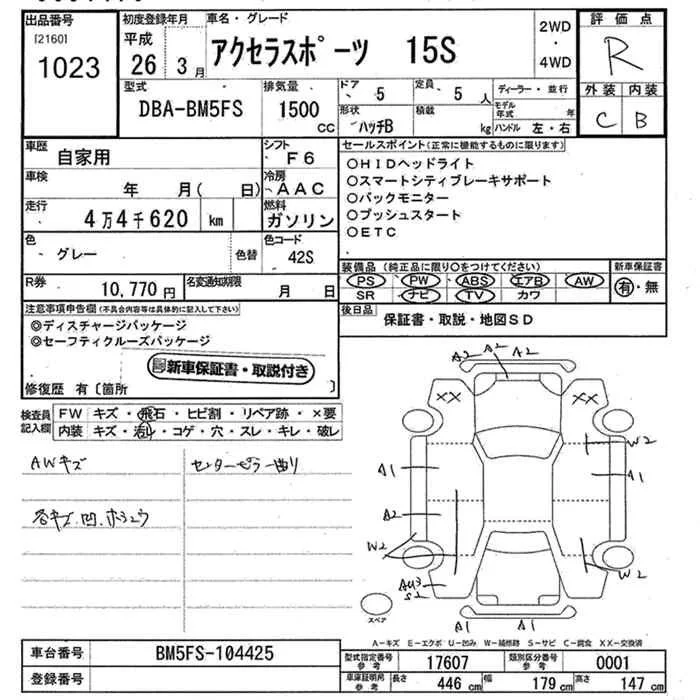 出品番号
[2160]
1023
初度登録年月
平成
26年3月
車名・グレード
アクセラスポーツ 15S
2WD
・
4WD
評価点
R
外装 内装
C B
型式
DBA-BM5FS
排気量
1500
CC
ドア
5
形状
ハッチB
定員
5人
積載
kg
ディーラー・並行
モデル年式 年
ハンドル 左・右
車歴
自家用
シフト
F6
車検
年 月( 日)
冷房
AAC
走行
4万4千620 km
燃料
ガソリン
色
グレー
色替
色コード
42S
R券
10,770円
名変通知期限
月 日
セールスポイント(正常に機能するものに限ります)
○HIDヘッドライト
○スマートシティブレーキサポート
○バックモニター
○プッシュスタート
○ETC
装備品(純正品に限り○をつけてください)
PS PW ABS エアB AW
SR ナビ TV カワ
新車保証書
有・無
後日品
保証書・取説・地図SD
注意事項申告欄(不具合内容等は具体的に記入して下さい)
◎ディスチャージパッケージ
◎セーフティクルーズパッケージ
新車保証書・取説付き
修復歴 有〔箇所 〕
検査員記入欄
FW キズ・飛石・ヒビ割・リペア跡・×要
内装 キズ・汚れ・コゲ・穴・スレ・キレ・破レ
AWキズ
各キズ.凹.ホシュウ
センターピラー曲り
A2 A2 A2
XX XX
W2
A1 A1
A2
W2 W2
AU3
S2
A1 A1
スペア
A-キズ E-エクボ U-凹み W-補修跡 S-サビ C-腐食 XX-交換済
車台番号
BM5FS-104425
登録番号
型式指定番号
参考
17607
類別区分番号
参考
0001
車庫証明用
参考
長さ 446 cm 幅 179 cm 高さ 147 cm